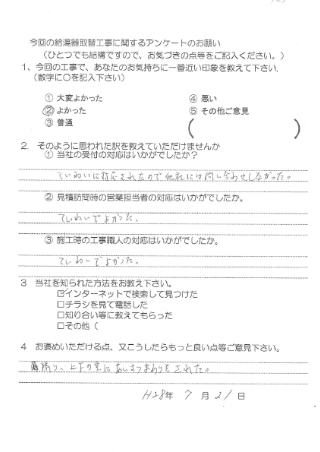 今回の給湯器取替工事に関するアンケートのお願い
(ひとつでも結構ですので、お気づきの点等をご記入ください。)
1、今回の工事で、あなたのお気持ちに一番近い印象を教えて下さい。
(数字に○を記入下さい)
① 大変よかった ④ 悪い
② よかった ⑤ その他ご意見
③ 普通 ( )
2. そのように思われた訳を教えていただけませんか
① 当社の受付の対応はいかがでしたか?
ていねいに対応されたので他社には問い合わせしなかった。
② 見積訪問時の営業担当者の対応はいかがでしたか。
ていねいでよかった。
③ 施工時の工事職人の対応はいかがでしたか。
ていねいでよかった。
3 当社を知られた方法をお教え下さい。
☑インターネットで検索して見つけた
□チラシを見て電話した
□知り合い等に教えてもらった
□その他(
4 お褒めいただける点、又こうしたらもっと良い点等ご意見下さい。
隣り、上下の家にあいさつまわりをされた。
H28年 7月 21日